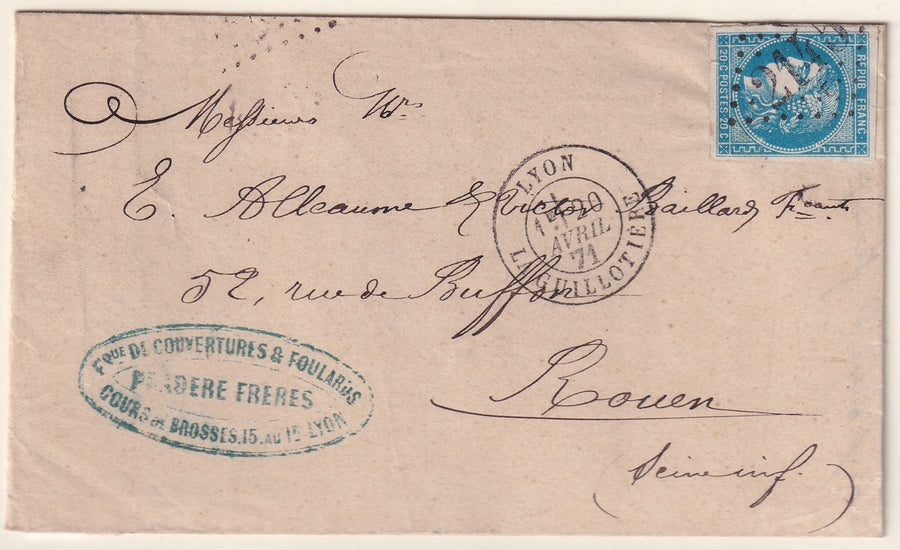 REPUB. FRANC.
20 C POSTES 20 C
Messieurs
E. Alleaume & Victor Baillard
52, rue de Buffon
Rouen
(Seine inf.)
LYON
20
AVRIL
71
LA GUILLOTIERE
Fque DE COUVERTURES & FOULARDS
FRERES
COURS DE BROSSES.15.AU LYON